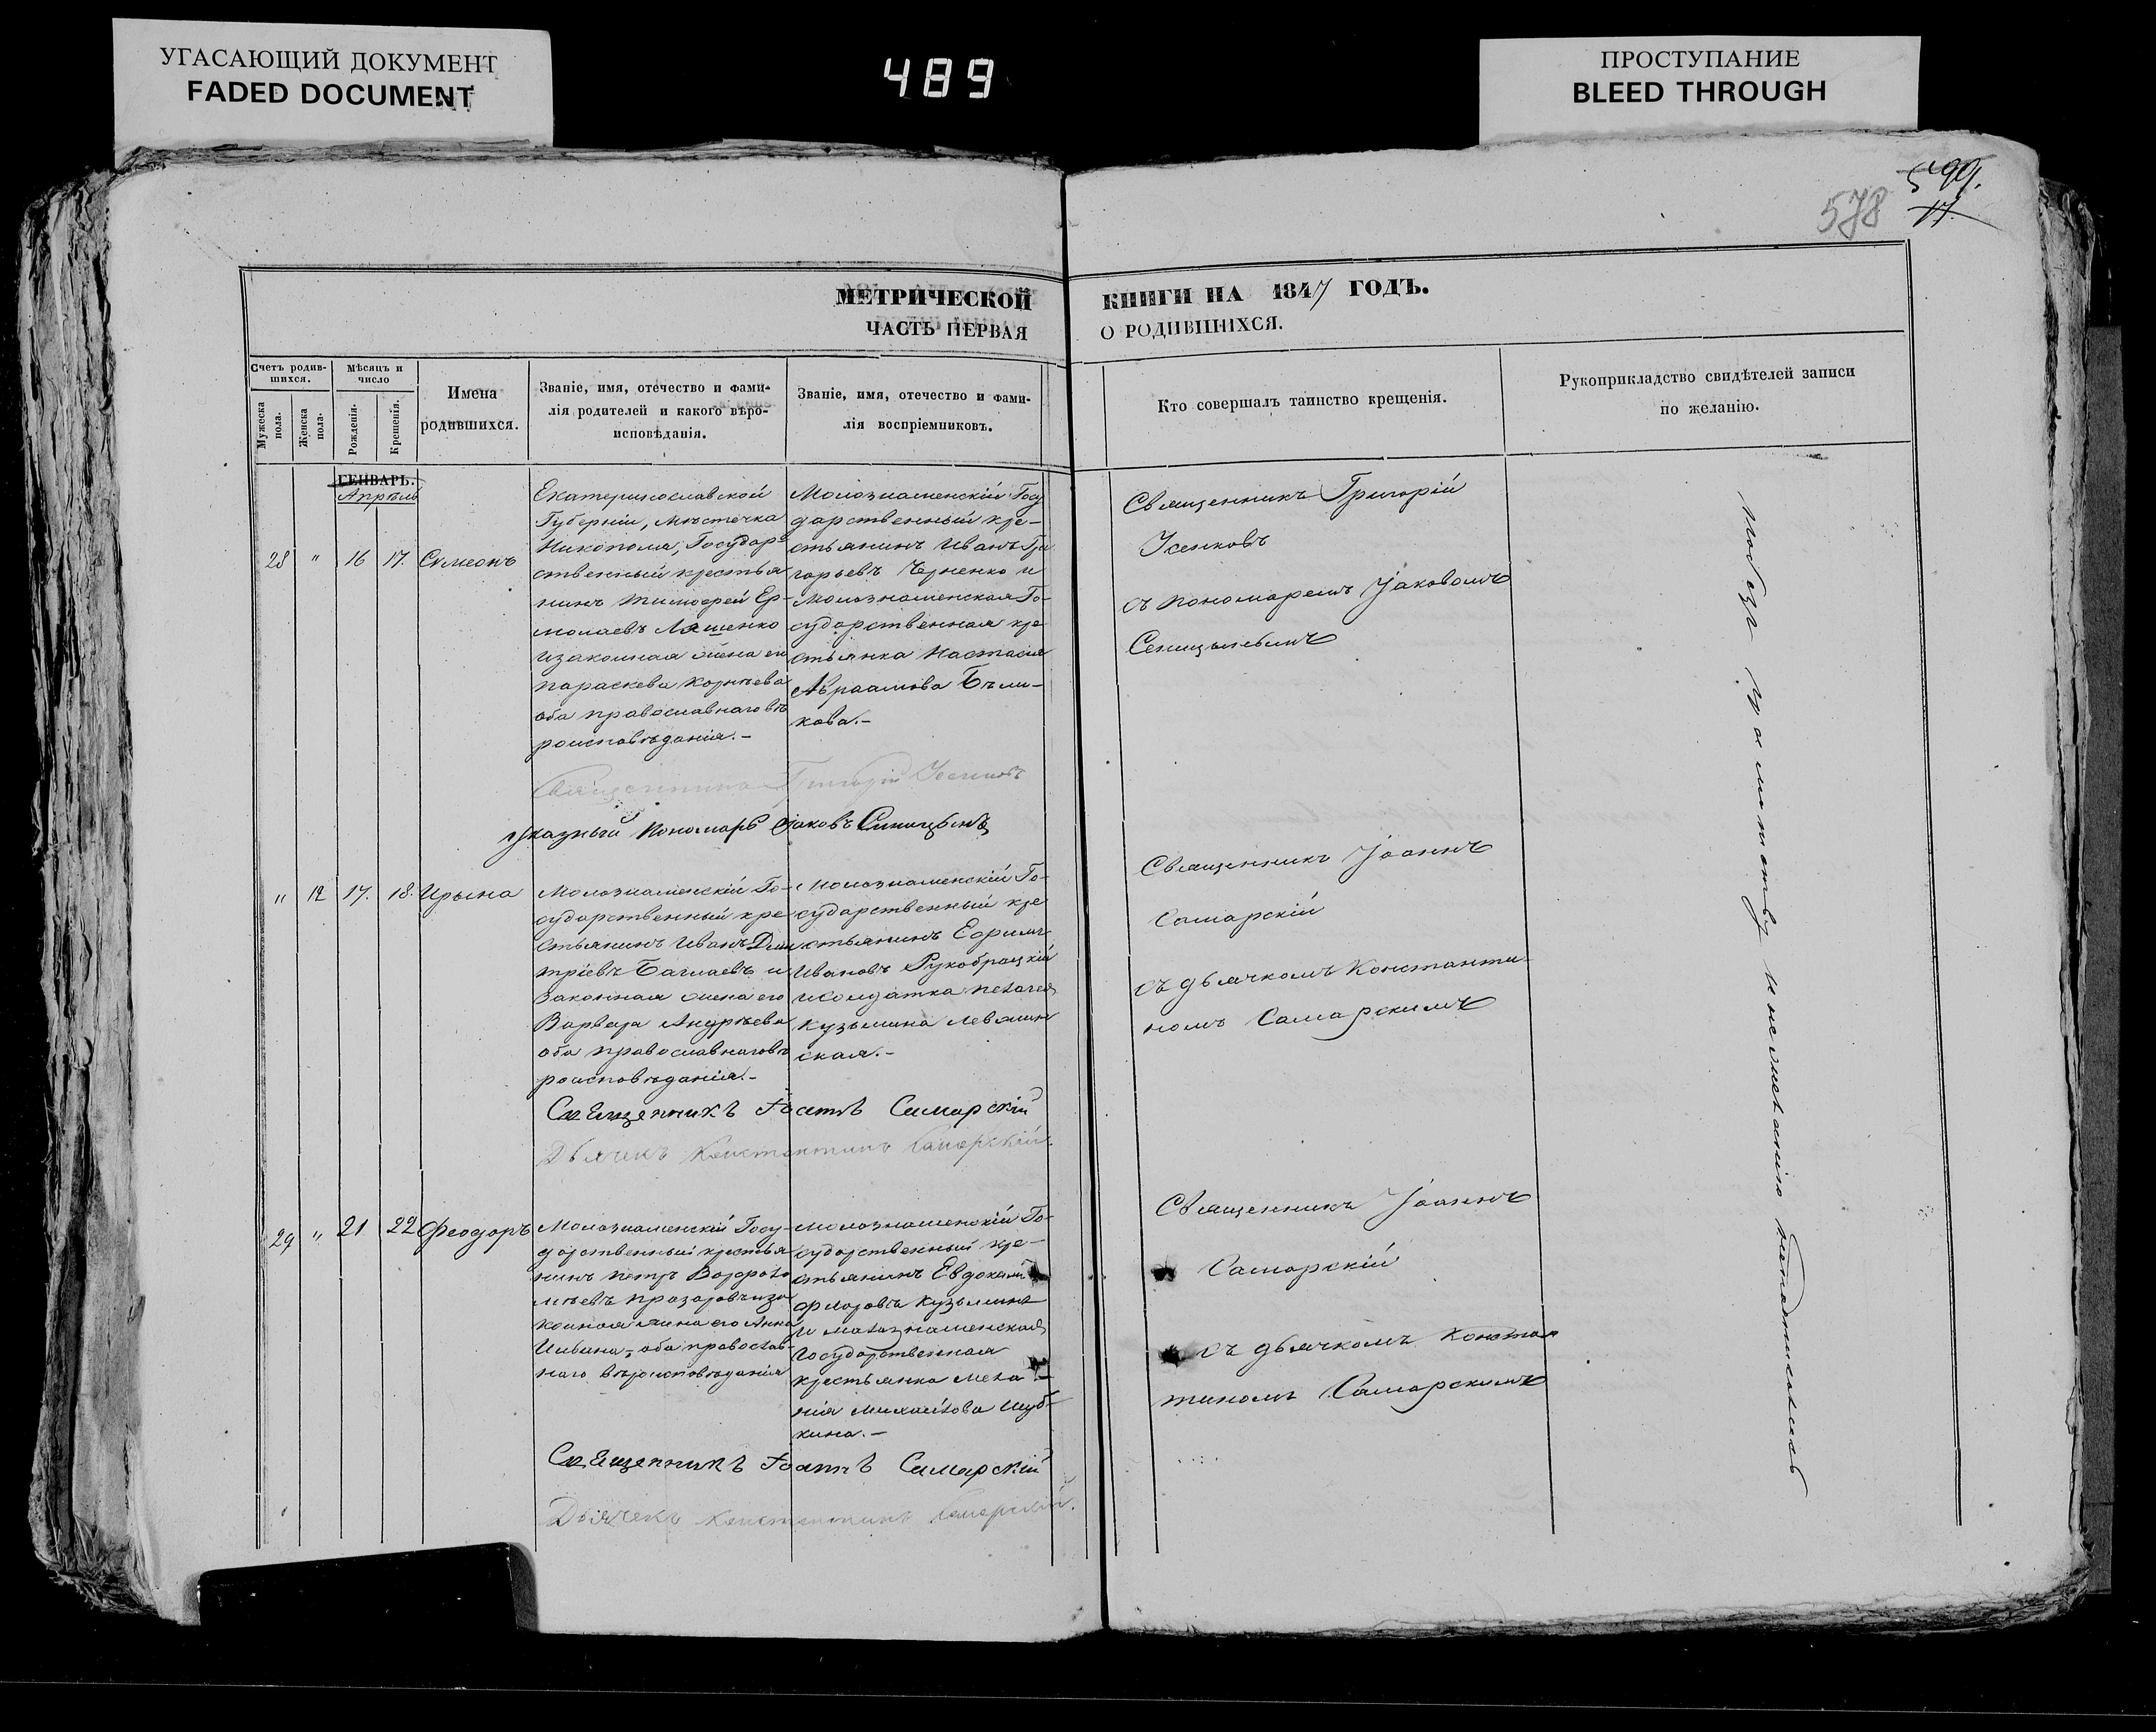 УГАСАЮЩИЙ ДОКУМЕНТ
FADED DOCUMENT
489
ПРОСТУПАНИЕ
BLEED THROUGH
599.
17.
578
МЕТРИЧЕСКОЙ
КНИГИ НА 1847 ГОДЪ.
ЧАСТЬ ПЕРВАЯ
О РОДИВШИХСЯ.
Счетъ родив-
шихся.
Мужеска
пола.
Женска
пола.
Мѣсяцъ и
число
Рожденія.
Крещенія.
Имена
родившихся.
Званіе, имя, отечество и фами-
лія родителей и какого вѣро-
исповѣданія.
Званіе, имя, отечество и фами-
лія воспріемниковъ.
Кто совершалъ таинство крещенія.
Рукоприкладство свидѣтелей записи
по желанію.
ГЕНВАРЬ.
Апрѣль
28 " 16 17. Сѵмеонъ
Екатеринославской
Губерніи, мѣстечка
Никополя, Государ-
ственный крестья
нинъ Тимофей Ер-
молаевъ Ляшенко
и законная жена его
Параскева Корнѣева
оба православнаго вѣ
роисповѣданія.-
Молознаменскій Госу
дарственный кре-
стьянинъ Иванъ Гри
горьевъ Черненко и
Молознаменская Го-
сударственная кре
стьянка Настасія
Авраамова Бѣли-
кова.-
Священникъ Григорій
Усенковъ
съ пономаремъ Іаковомъ
Синицынымъ
Священникъ Григорій Усенковъ
указный Пономарь Іаковъ Синицынъ
" 12 17. 18. Ирына
Молознаменскій Го-
сударственный кре
стьянинъ Иванъ Дми
тріевъ Баглаевъ и
законная жена его
Варвара Андрѣева
оба православнаго вѣ
роисповѣданія.-
Молознаменскій Го-
сударственный кре
стьянинъ Ефимъ
Ивановъ Рукобрацкій
и солдатка Пелагея
Кузьмина Левшин
ская.-
Священникъ Іоаннъ
Самарскій
съ дьячкомъ Константи-
номъ Самарскимъ
Священникъ Іоаннъ Самарскій
Дьячекъ Константинъ Самарскій.
29 " 21 22 Феодоръ
Молознаменскій Госу-
дарственный крестья
нинъ Петръ Варфоло
мѣевъ Прозоровъ и за
конная жена его Анна
Иивана, оба православ-
наго вѣроисповѣданія
Молознаменскій Го-
сударственный кре-
стьянинъ Евдокимъ
Фроловъ Кузьминъ
и Малознаменская
Государственная
крестьянка Мела-
нія Михайлова Шуб-
кина.-
Священникъ Іоаннъ
Самарскій
съ дьячкомъ Констан
тиномъ Самарскимъ
Священникъ Іоаннъ Самарскій
Дьячекъ Константинъ Самарскій.